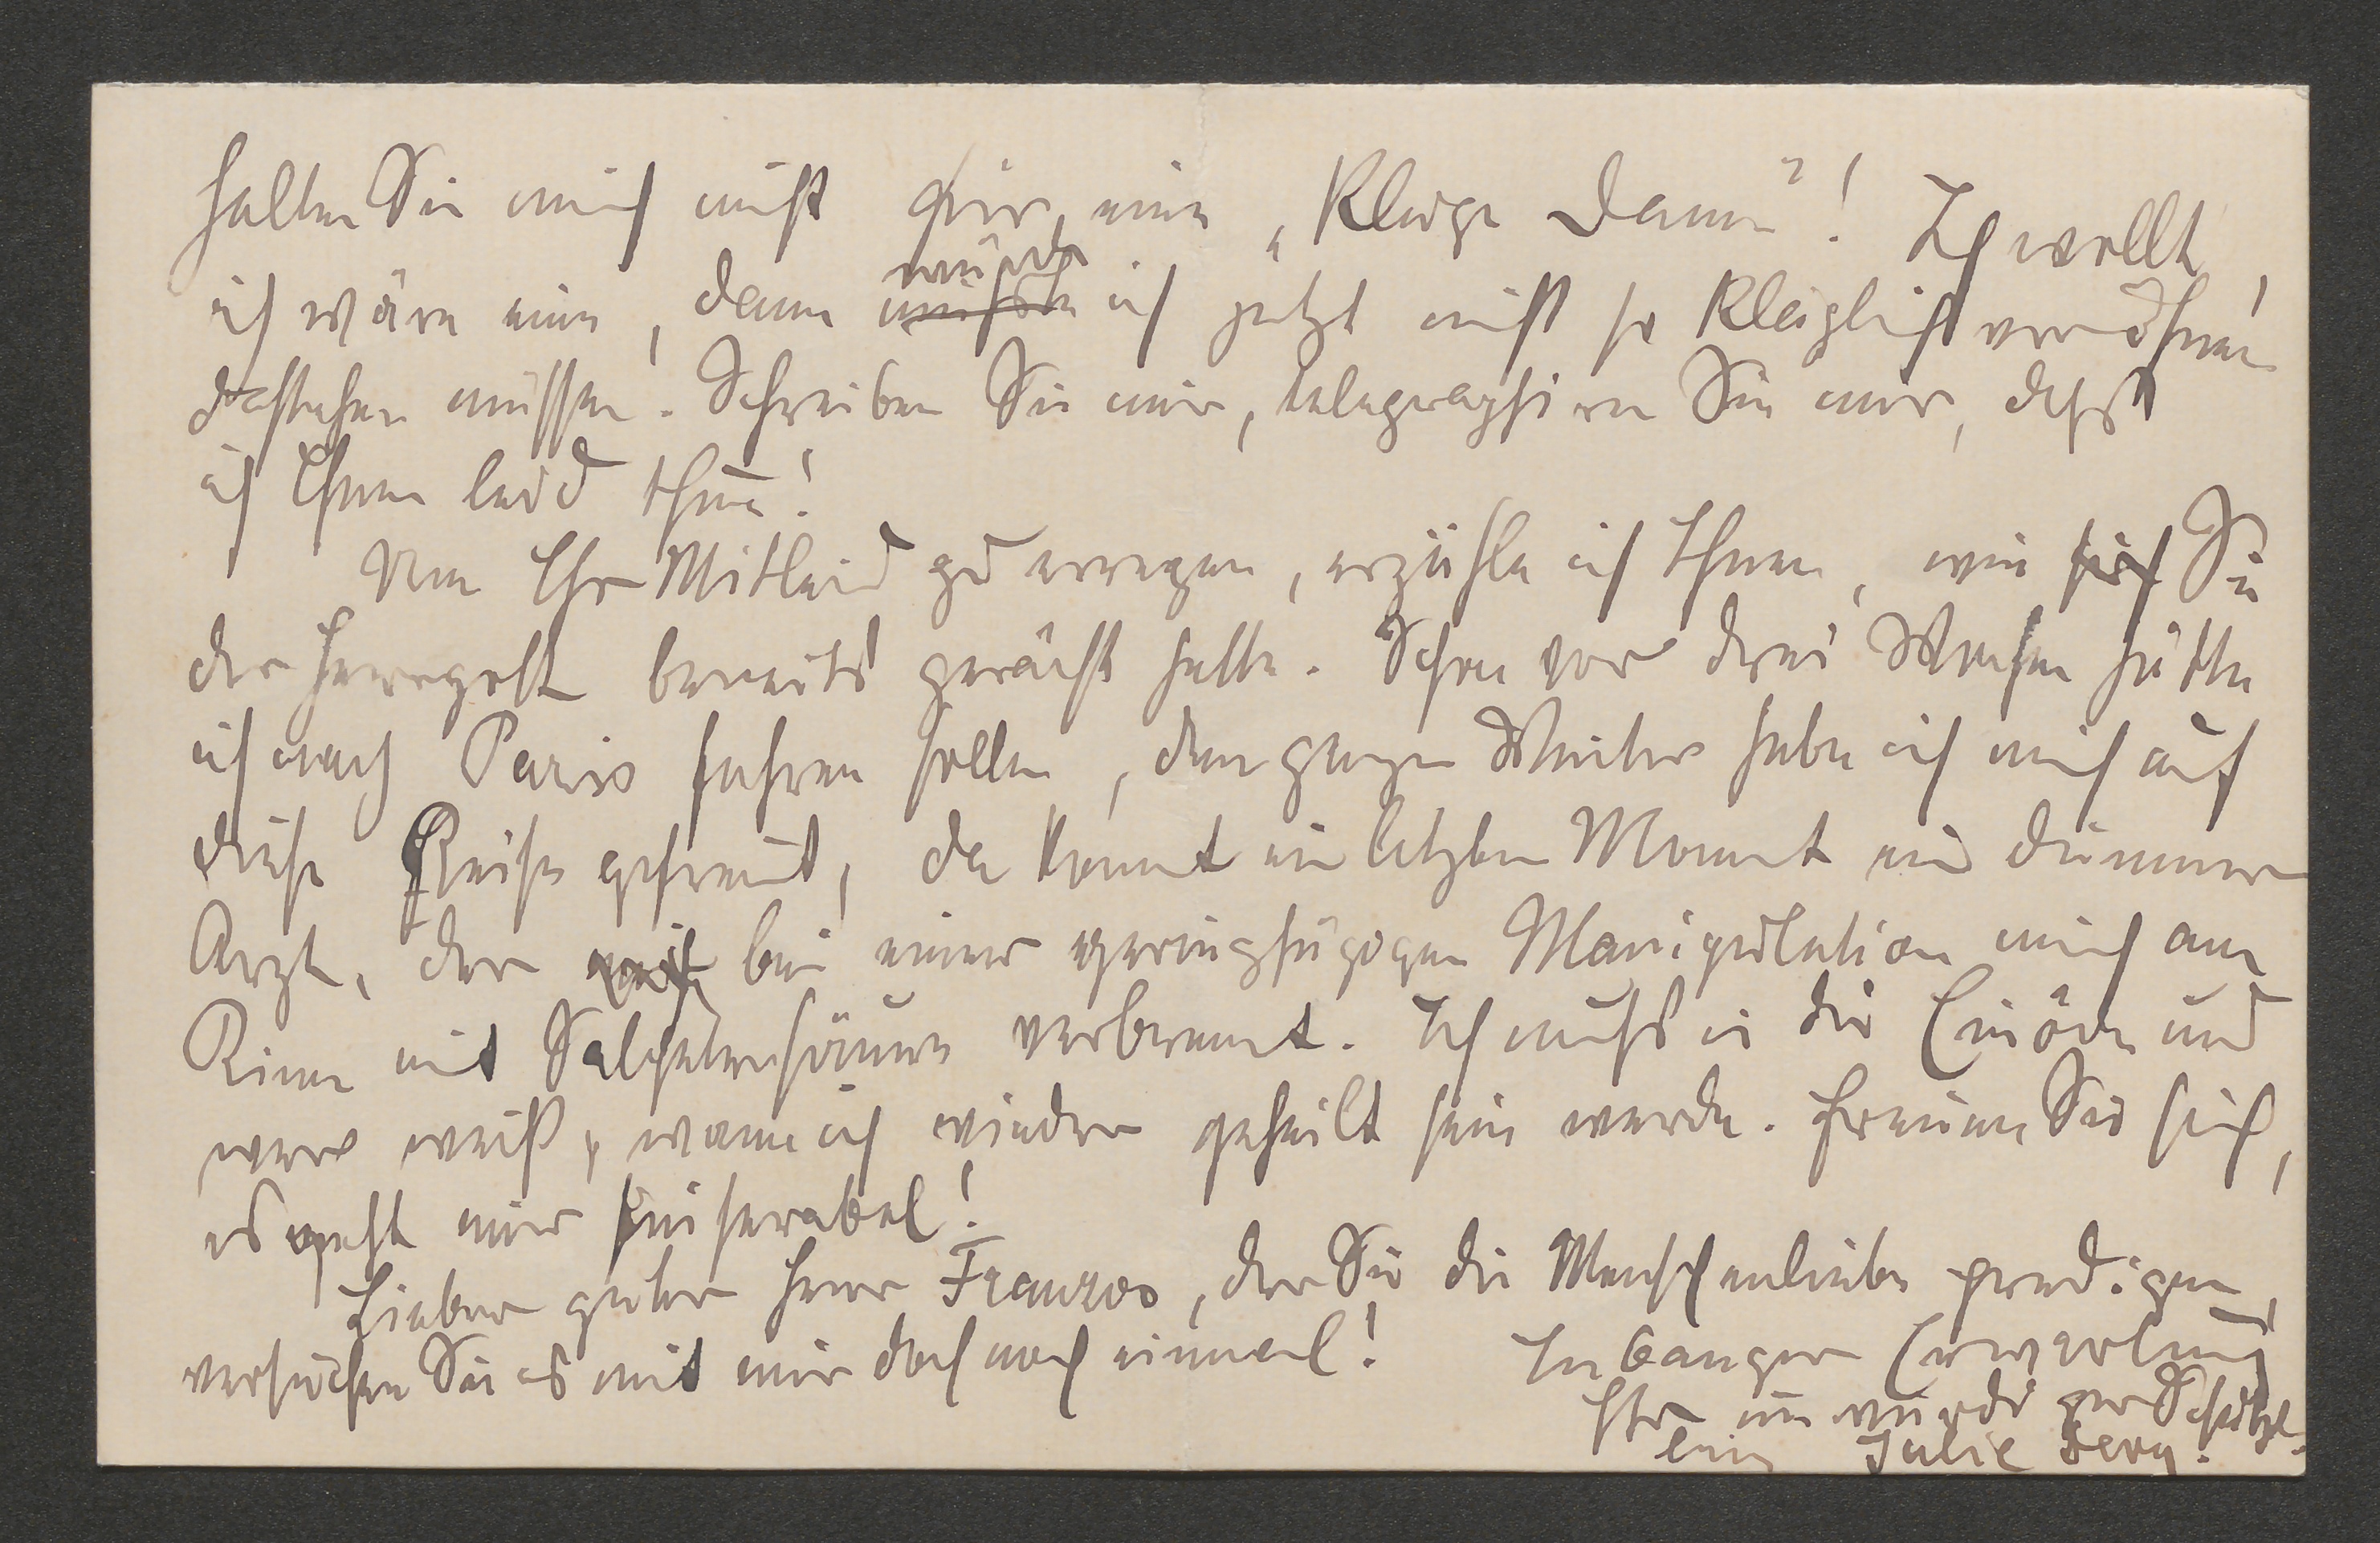 halten Sie mich nicht für eine „kluge Dame"! Ich wollt,
ich wäre eine, dann würde ich jetzt nicht so kläglich vor Ihnen
dastehen müssen. Schreiben Sie mir, telegraphiren Sie mir, dass
ich Ihnen leid thue!
Um Ihr Mitleid zu erregen, erzähle ich Ihnen, wie sich Sie
der Herrgott bereits gerächt hatte. Schon vor drei Wochen hätte
ich nach Paris fahren sollen, den ganzen Winter habe ich mich auf
diese Reise gefreut, da kommt im letzten Moment ein dummer
Arzt, der mich bei einer geringfügigen Manipulation mich am
Kinn mit Salpetersäure verbrennt. Ich muss in die Einöde und
wer weiß, wann ich wieder geheilt sein werde. Freuen Sie sich,
es geht mir miserabel!
Lieber guter Herr Franzos, der Sie die Menschenliebe predigen,
versuchen Sie es mit mir doch noch einmal! In banger Erwartung
Ihr unwürdiger Schütz-
ling Julie